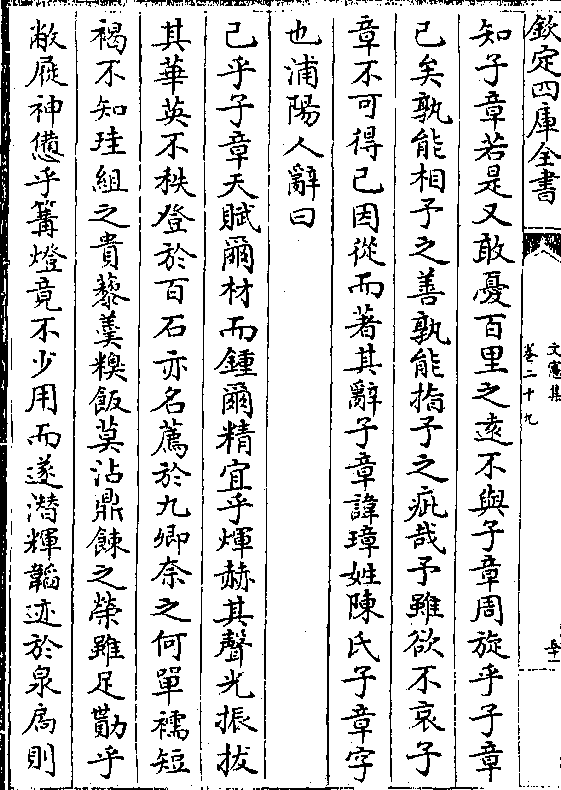 欽定四庫全書
文憲集
卷二十九
知子章若是又敢憂百里之逺不與子章周旋乎子章
已矣孰能相予之善孰能指予之疵哉予雖欲不哀子
章不可得已因從而著其辭子章諱璋姓陳氏子章字
也浦陽人辭曰
已乎子章天賦爾材而鍾爾精宜乎煇赫其聲光振拔
其華英不秩登於百石亦名薦於九卿奈之何單襦短
褐不知珪組之貴藜羮糗飯莫沾鼎餗之榮雖足勚乎
敝屣神憊乎篝燈竟不少用而遂潛輝韜迹於泉扃則